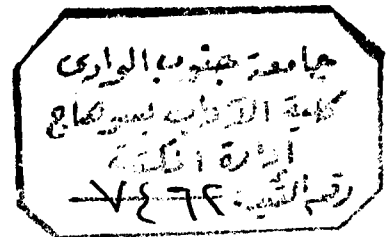 جامعة جنوب الوادى
كلية الآداب بسوهاج
إدارة المكتبة
رقم القيد: ٧٤٦٢